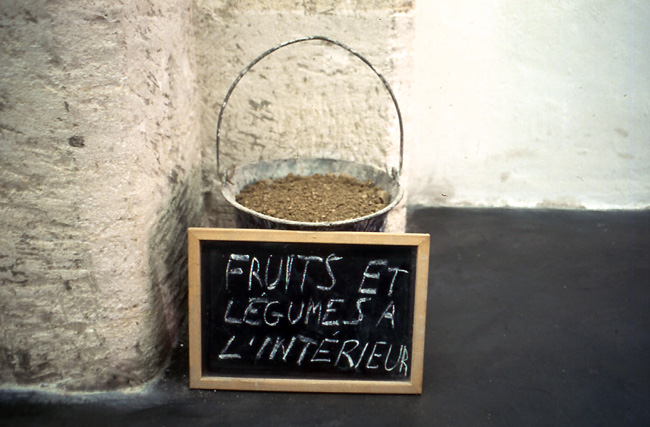 FRUITS ET
LÉGUMES A
L'INTÉRIEUR